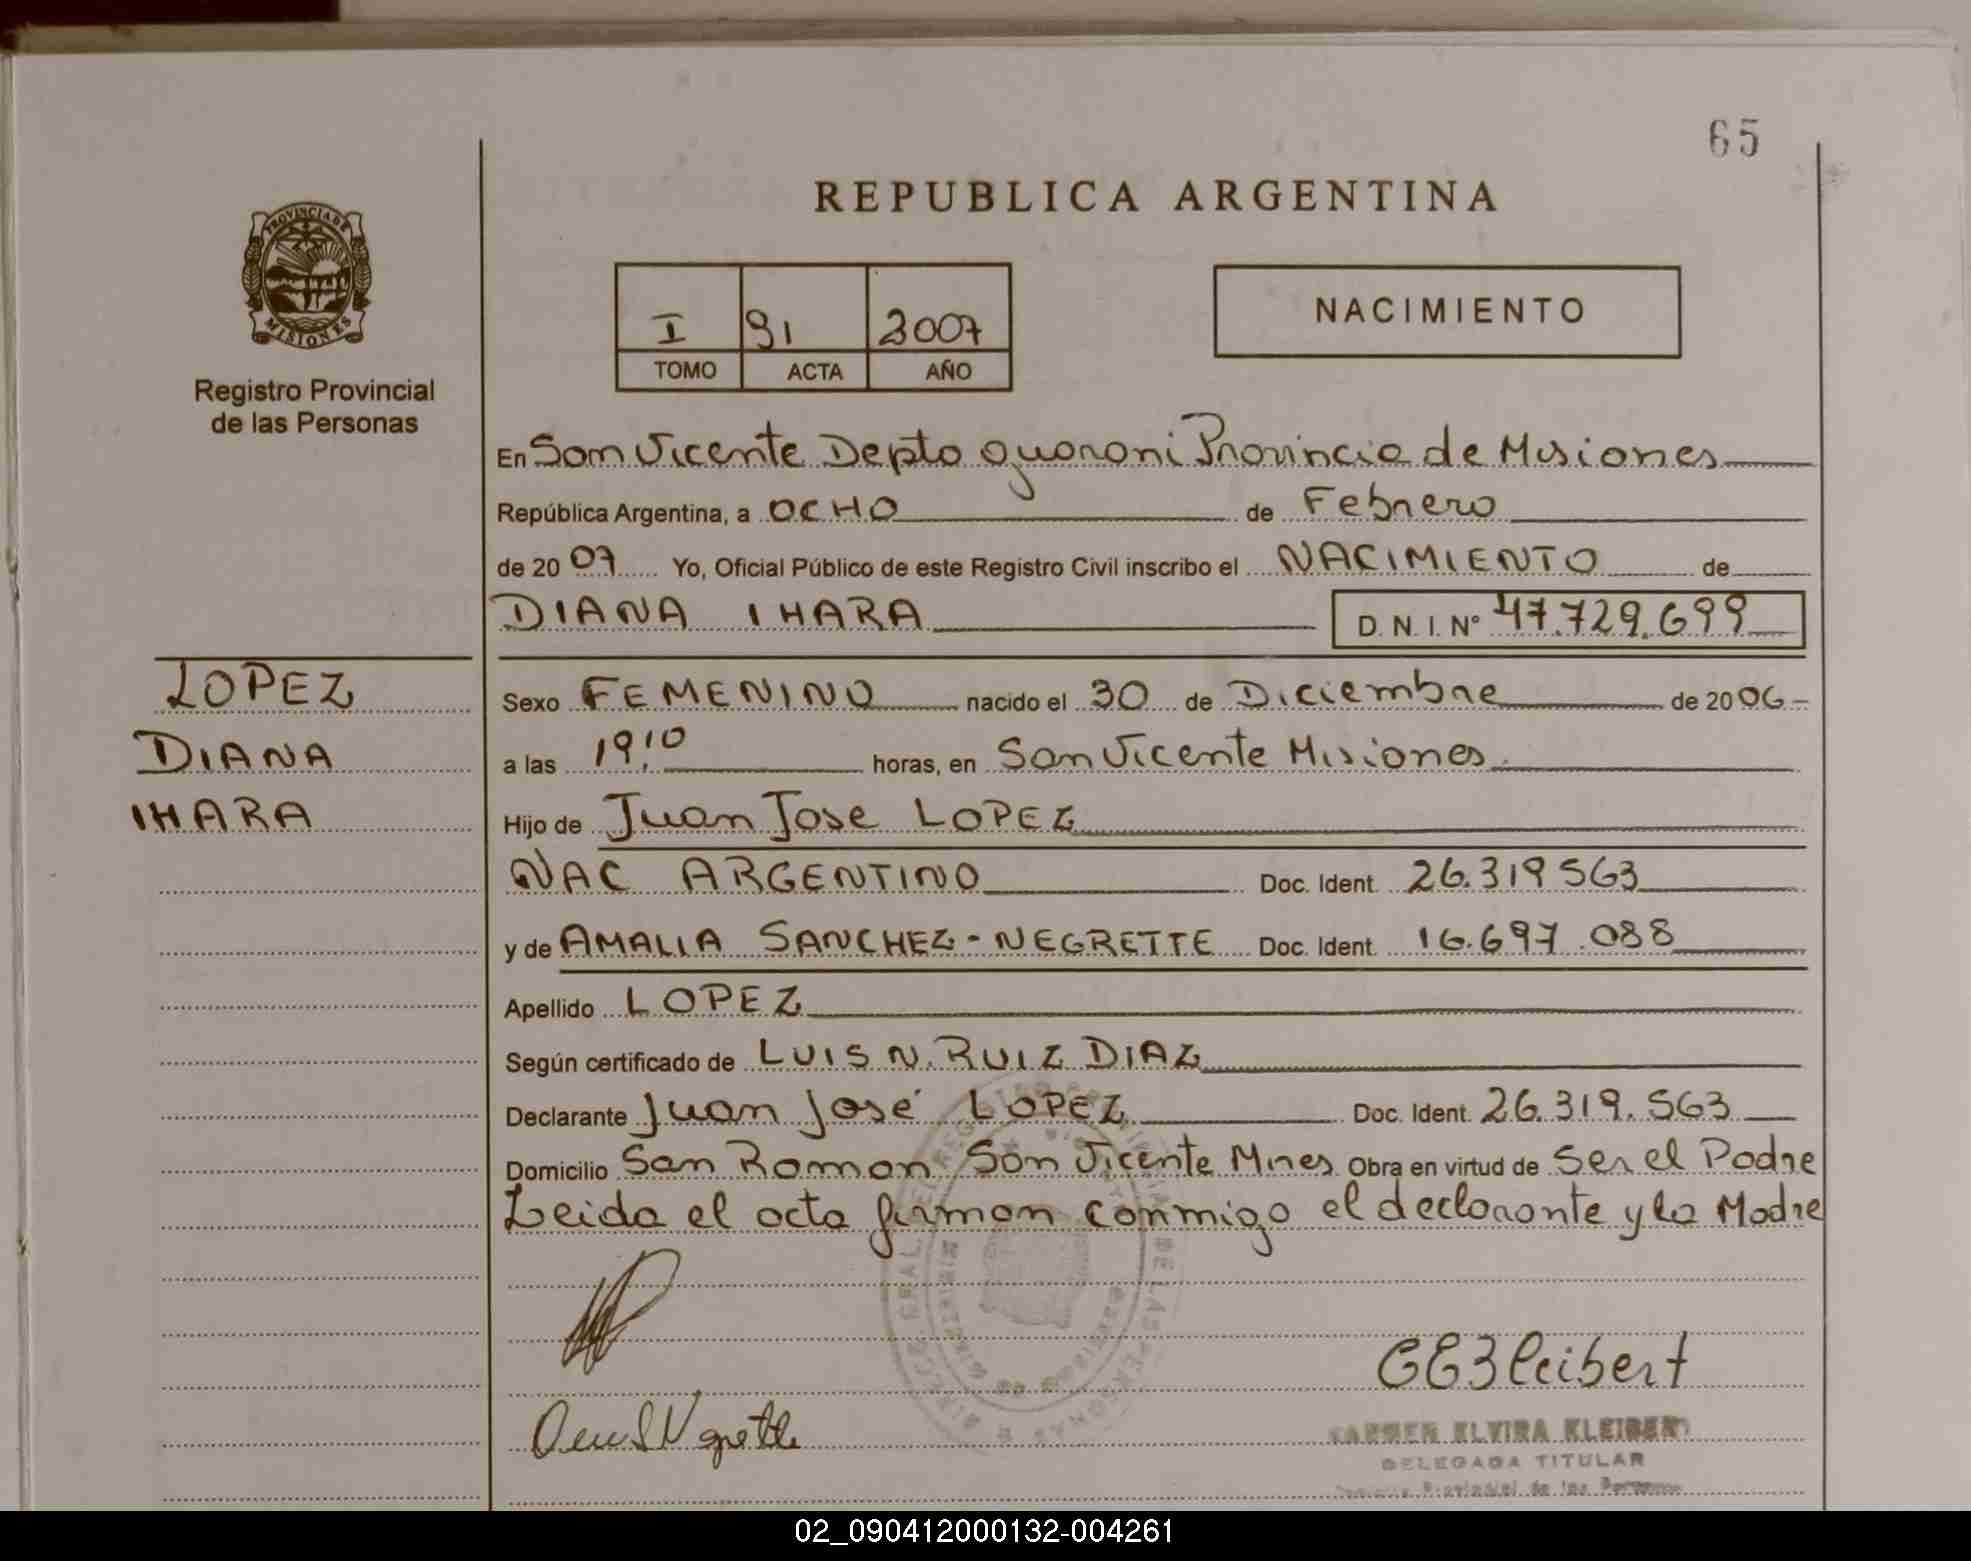 65
REPUBLICA ARGENTINA
PROVINCIA DE
MISIONES
Registro Provincial
de las Personas
I 91 2007
TOMO ACTA AÑO
NACIMIENTO
En San Vicente Depto guarani Provincia de Misiones
República Argentina, a OCHO de Febrero
de 2007 Yo, Oficial Público de este Registro Civil inscribo el NACIMIENTO de
DIANA IHARA D.N.I. Nº 47.729.699
LOPEZ
DIANA
IHARA
Sexo FEMENINO nacido el 30 de Diciembre de 2006
a las 19:10 horas, en San Vicente Misiones
Hijo de Juan Jose LOPEZ
NAC ARGENTINO Doc. Ident. 26.319563
y de AMALIA SANCHEZ-NEGRETTE Doc. Ident. 16.697.088
Apellido LOPEZ
Según certificado de LUIS N. RUIZ DIAZ
Declarante Juan José LOPEZ Doc. Ident. 26.319.563
Domicilio San Ramon San Vicente Mnes Obra en virtud de Ser el Padre
Leida el acta firman conmigo el declarante y la Madre
CARMEN ELVIRA KLEIBERT
DELEGADA TITULAR
Provincial de las Personas
02_090412000132-004261